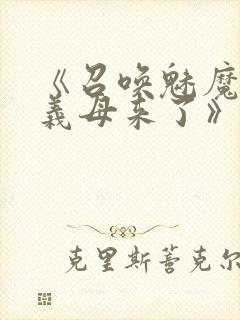 《召唤魅魔
義母来了》
克里斯蒈克尔